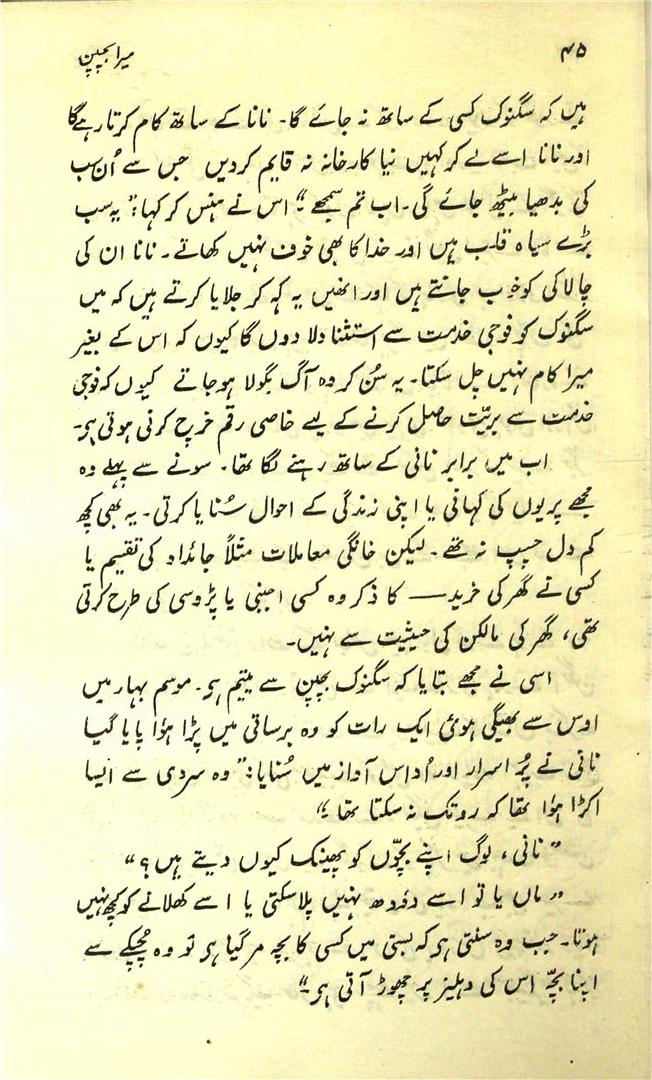 ۴۵ میرا بچپن
ہیں کہ سگنوک کسی کے ساتھ نہ جائے گا۔ نانا کے ساتھ کام کرتا رہے گا
اور نانا اسے لے کر کہیں نیا کارخانہ نہ قایم کردیں جس سے اُن سب
کی بدھیا بیٹھ جائے گی۔ اب تم سمجھے؟“ اس نے ہنس کر کہا: ”یہ سب
بڑے سیاہ قلب ہیں اور خدا کا بھی خوف نہیں کھاتے۔ نانا ان کی
چالاکی کو خوب جانتے ہیں اور انھیں یہ کہہ کر جلایا کرتے ہیں کہ میں
سگنوک کو فوجی خدمت سے استثنا دلا دوں گا کیوں کہ اس کے بغیر
میرا کام نہیں چل سکتا۔ یہ سُن کر وہ آگ بگولا ہوجاتے کیوں کہ فوجی
خدمت سے بریّت حاصل کرنے کے لیے خاصی رقم خرچ کرنی ہوتی ہی۔
اب میں برابر نانی کے ساتھ رہنے لگا تھا۔ سونے سے پہلے وہ
مجھے پریوں کی کہانی یا اپنی زندگی کے احوال سُنایا کرتی۔ یہ بھی کچھ
کم دل چسپ نہ تھے۔ لیکن خانگی معاملات مثلاً جائداد کی تقسیم یا
کسی نے گھر کی خرید—— کا ذکر وہ کسی اجنبی یا پڑوسی کی طرح کرتی
تھی، گھر کی مالکن کی حیثیت سے نہیں۔
اسی نے مجھے بتایا کہ سگنوک بچپن سے یتیم ہی۔ موسم بہار میں
اوس سے بھیگی ہوئی ایک رات کو وہ برساتی میں پڑا ہؤا پایا گیا
نانی نے پُر اسرار اور اُداس آواز میں سُنایا: ”وہ سردی سے ایسا
اکڑا ہؤا تھا کہ رو تک نہ سکتا تھا۔“
”نانی، لوگ اپنے بچّوں کو پھینک کیوں دیتے ہیں؟“
”ماں یا تو اسے دؤدھ نہیں پلاسکتی یا اسے کھلانے کو کچھ نہیں
ہوتا۔ جب وہ سنتی ہی کہ بستی میں کسی کا بچہ مرگیا ہی تو وہ چُپکے سے
اپنا بچّہ اس کی دہلیز پر چھوڑ آتی ہی۔“